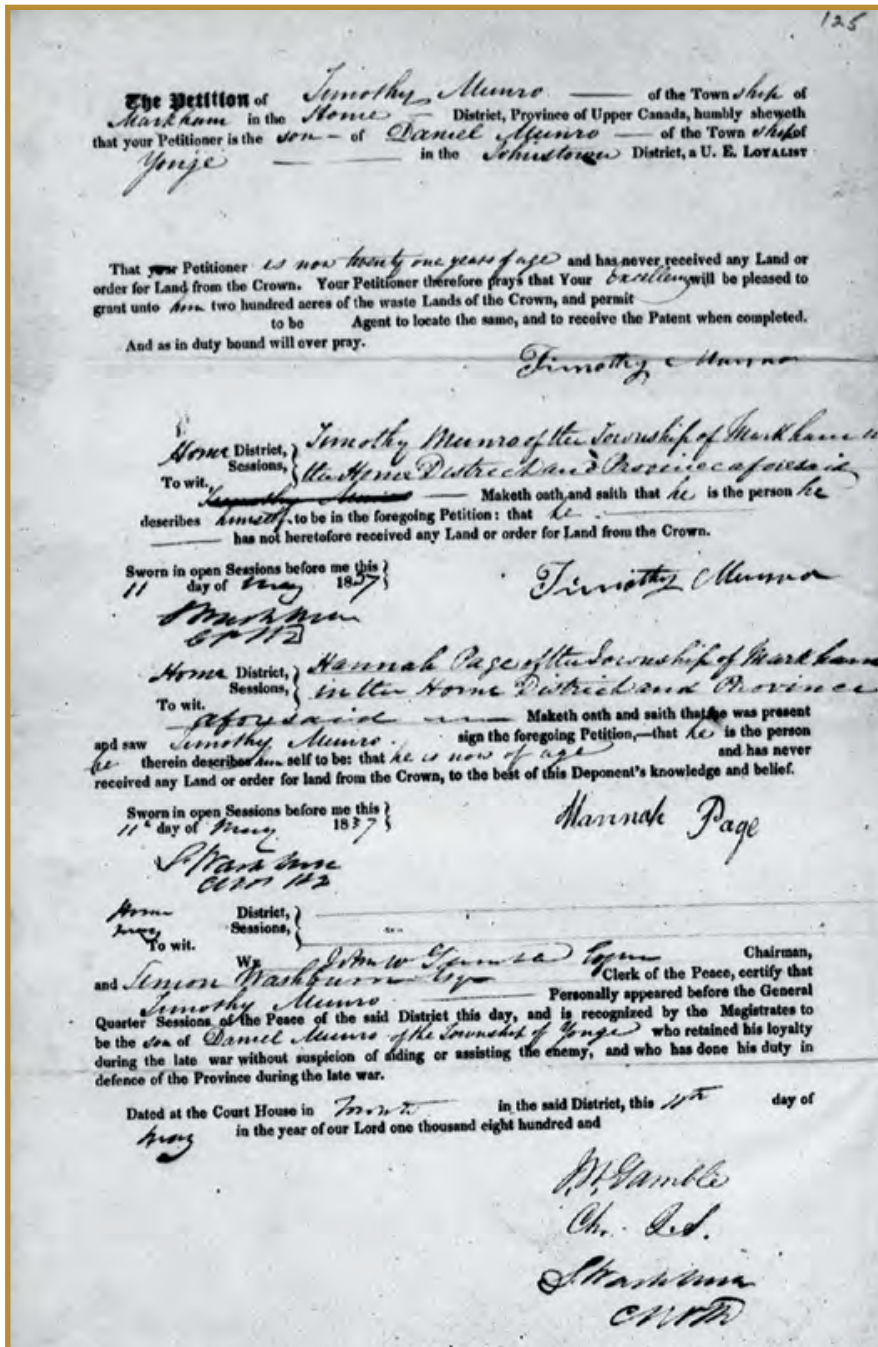 125
The Petition of Timothy Munro — of the Town ship of
Markham in the Home — District, Province of Upper Canada, humbly sheweth
that your Petitioner is the son — of Daniel Munro — of the Town ship of
Yonge — in the Johnstown District, a U. E. LOYALIST
That your Petitioner is now twenty one years of age and has never received any Land or
order for Land from the Crown. Your Petitioner therefore prays that Your Excellency will be pleased to
grant unto him two hundred acres of the waste Lands of the Crown, and permit
to be Agent to locate the same, and to receive the Patent when completed.
And as in duty bound will ever pray.
Timothy Munro
Home District, Timothy Munro of the Township of Markham in
Sessions, the Home District and Province aforesaid
To wit. Timothy Munro — Maketh oath and saith that he is the person he
describes himself to be in the foregoing Petition: that he
— has not heretofore received any Land or order for Land from the Crown.
Sworn in open Sessions before me this
11 day of May 1837
Timothy Munro
S Washburn
Home District, Hannah Page of the Township of Markham
Sessions, in the Home District and Province
To wit. aforesaid — Maketh oath and saith that he was present
and saw Timothy Munro sign the foregoing Petition,—that he is the person
he therein describes him self to be: that he is now of age and has never
received any Land or order for land from the Crown, to the best of this Deponent's knowledge and belief.
Sworn in open Sessions before me this
11th day of May 1837
Hannah Page
S Washburn
Home District,
May Sessions,
To wit.
We John W Gamble Chairman,
and Simon Washburn Esq Clerk of the Peace, certify that
Timothy Munro — Personally appeared before the General
Quarter Sessions of the Peace of the said District this day, and is recognized by the Magistrates to
be the son of Daniel Munro of the Township of Yonge who retained his loyalty
during the late war without suspicion of aiding or assisting the enemy, and who has done his duty in
defence of the Province during the late war.
Dated at the Court House in Toronto in the said District, this 11th day of
May in the year of our Lord one thousand eight hundred and
J.W. Gamble
Ch. Q.S.
S. Washburn